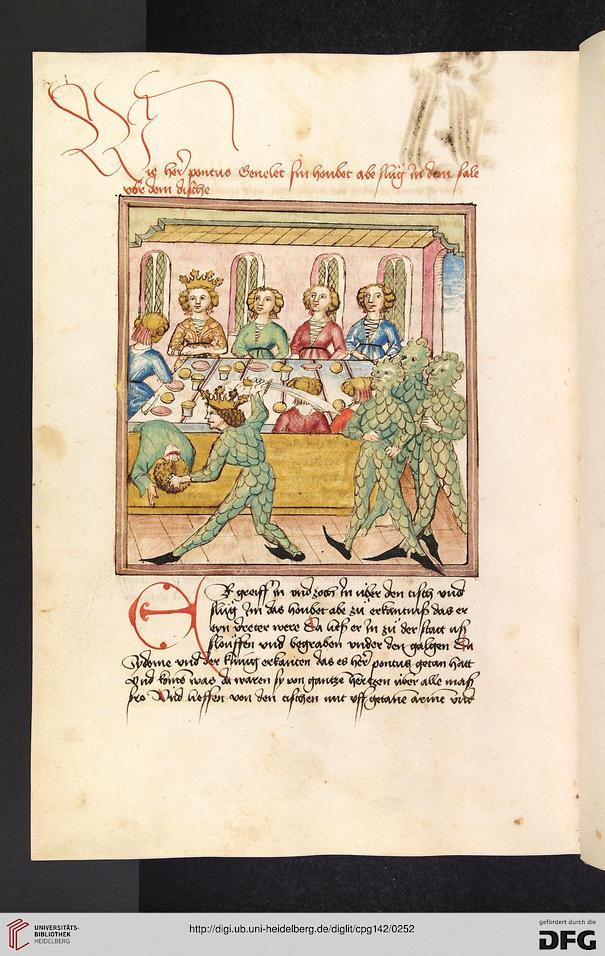 Wie her pontus Genelet sin houbet abe slug in dem sale
vor dem dische
ER greiff in und zoch in uber den tisch und
slug im das houbet abe zu erkantnuß das er
eyn verreter were Da ließ er in zu der statt uß
slouffen und begraben under den galgen Da
Sydonie und der kunig erkanten das es her pontus getan hatt
Und komen was da waren sy von gantzem hertzen uber alle maß
fro Und lieffen von den tischen mit uff getane armen und
UNIVERSITÄTS-
BIBLIOTHEK
HEIDELBERG
http://digi.ub.uni-heidelberg.de/diglit/cpg142/0252
gefördert durch die
DFG